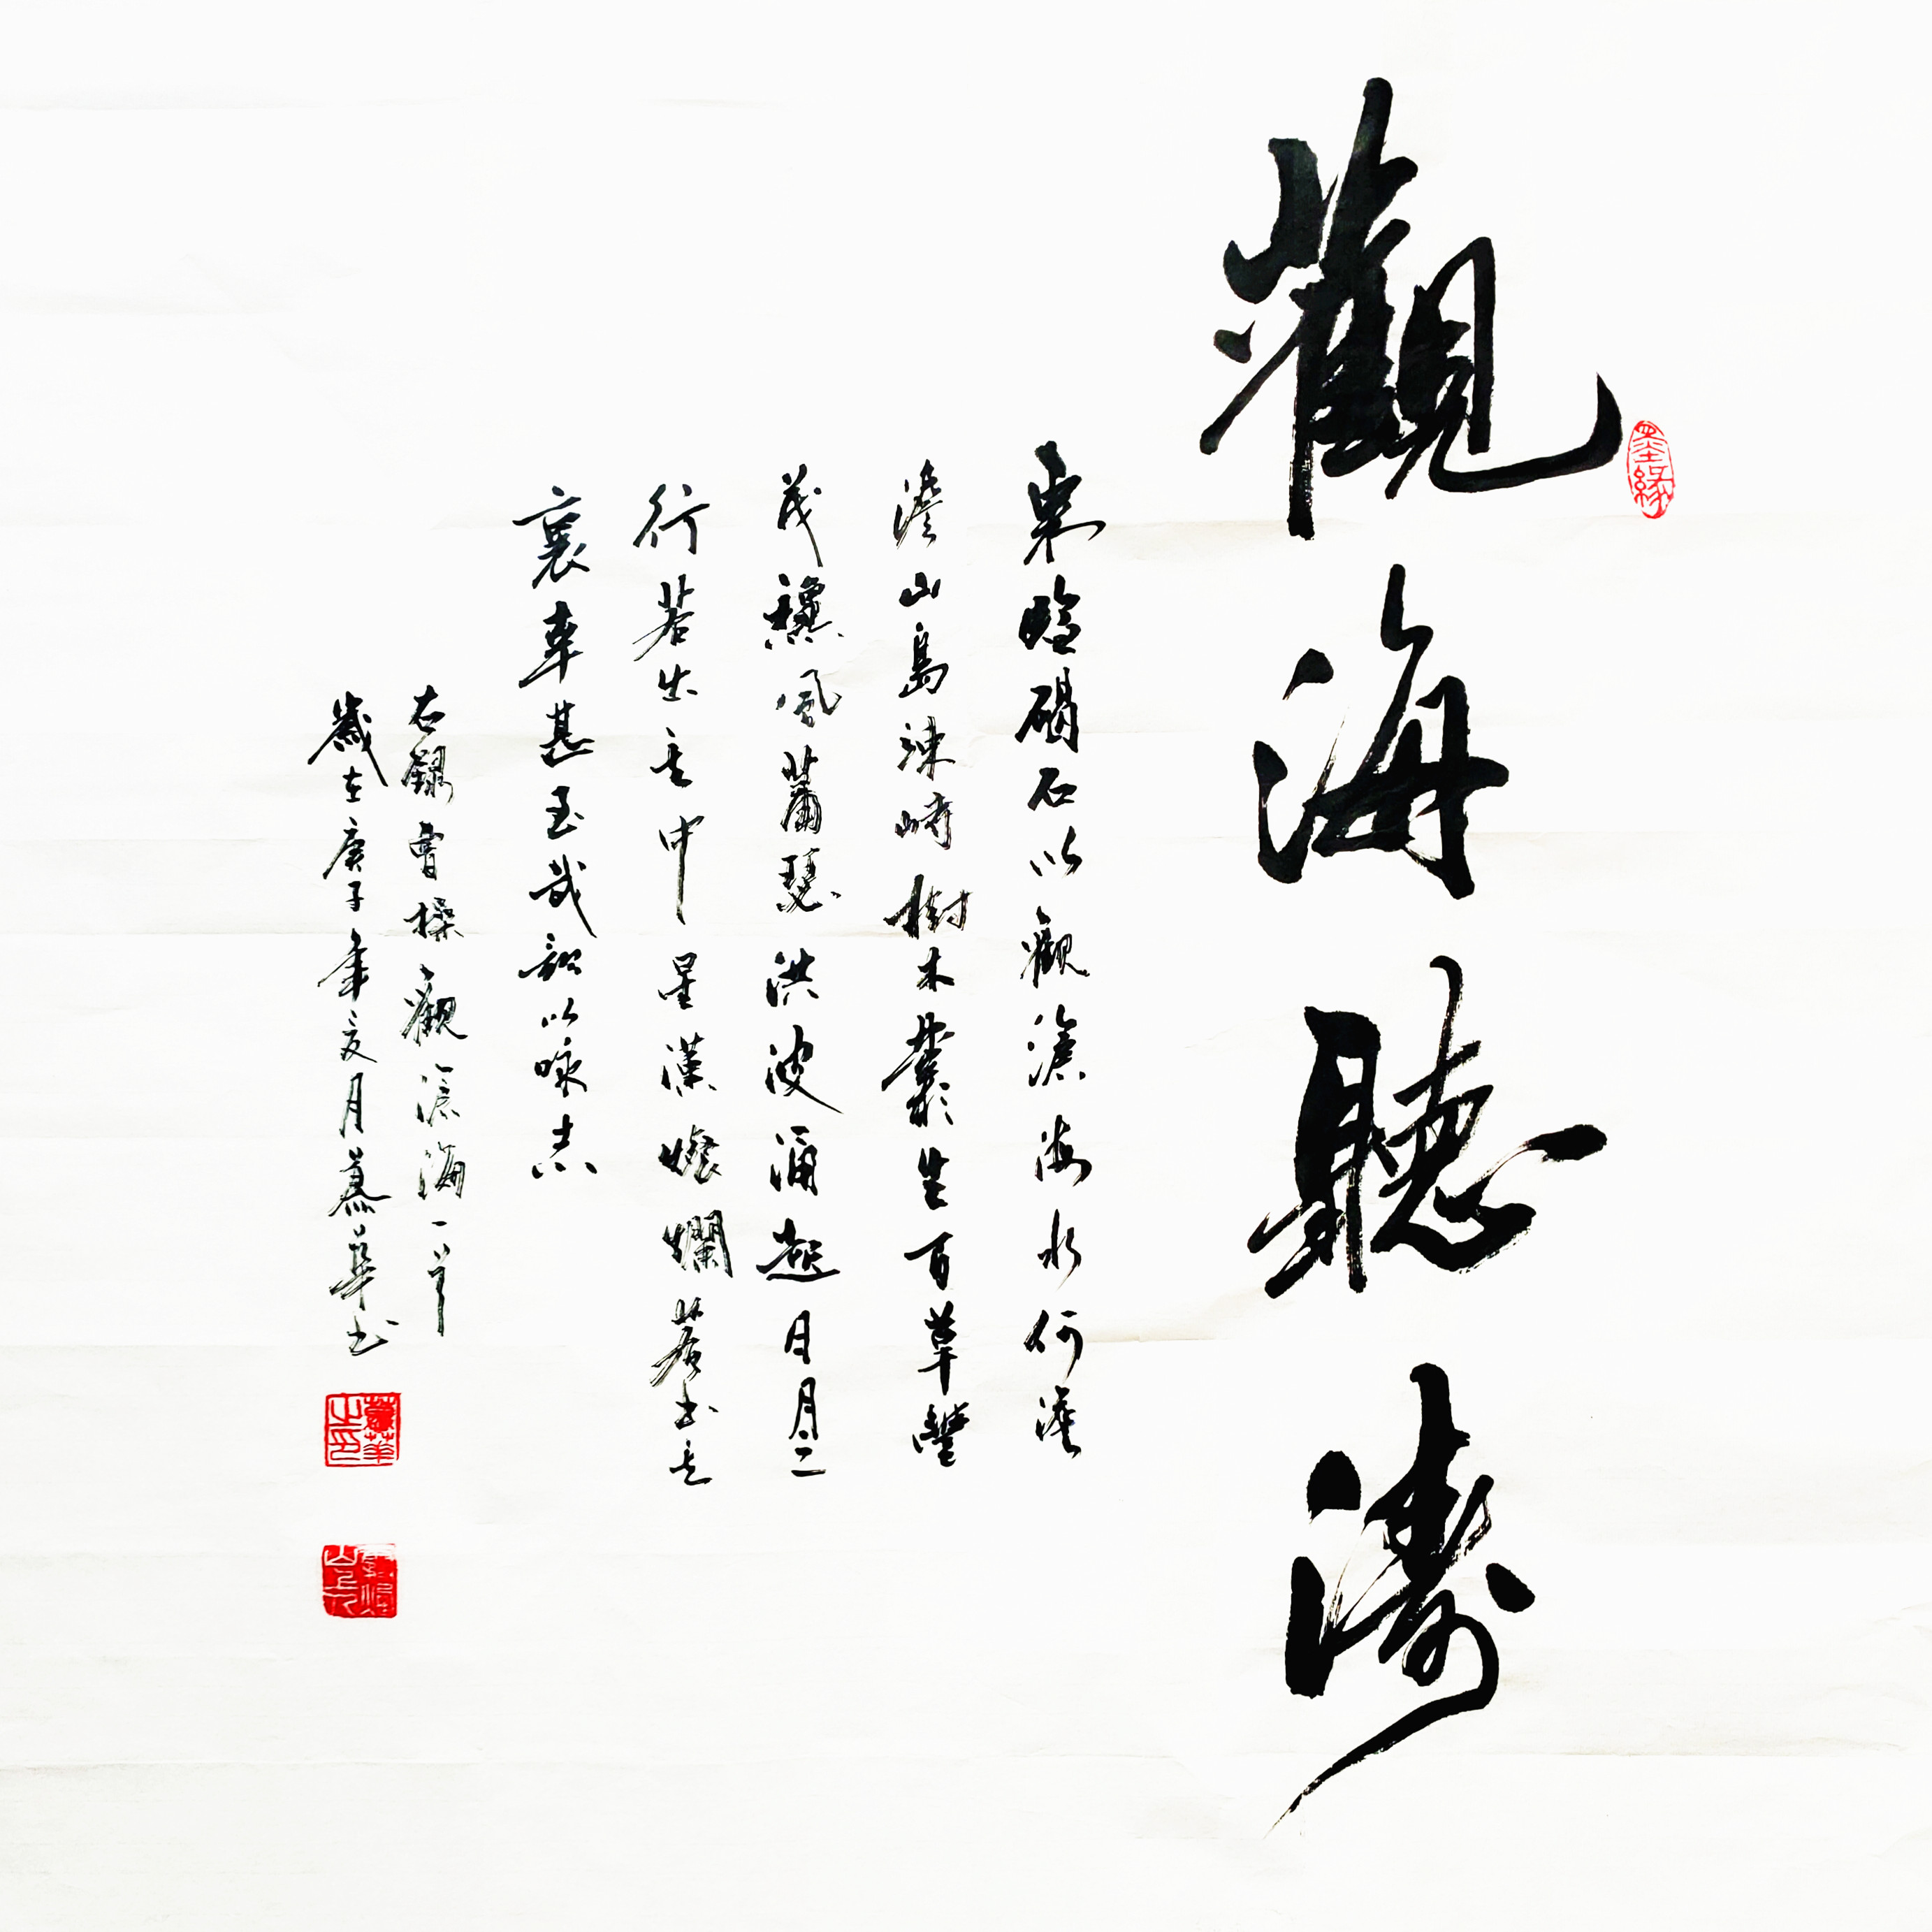 墨緣
觀海聽濤
東臨碣石以觀滄海水何澹
澹山島竦峙樹木叢生百草豐
茂穐風蕭瑟洪波涌起日月之
行若出其中星漢燦爛若出其
裏幸甚至哉歌以咏志
右錄曹操觀滄海一首
歲在庚子年夏月慕華书
慕華之印